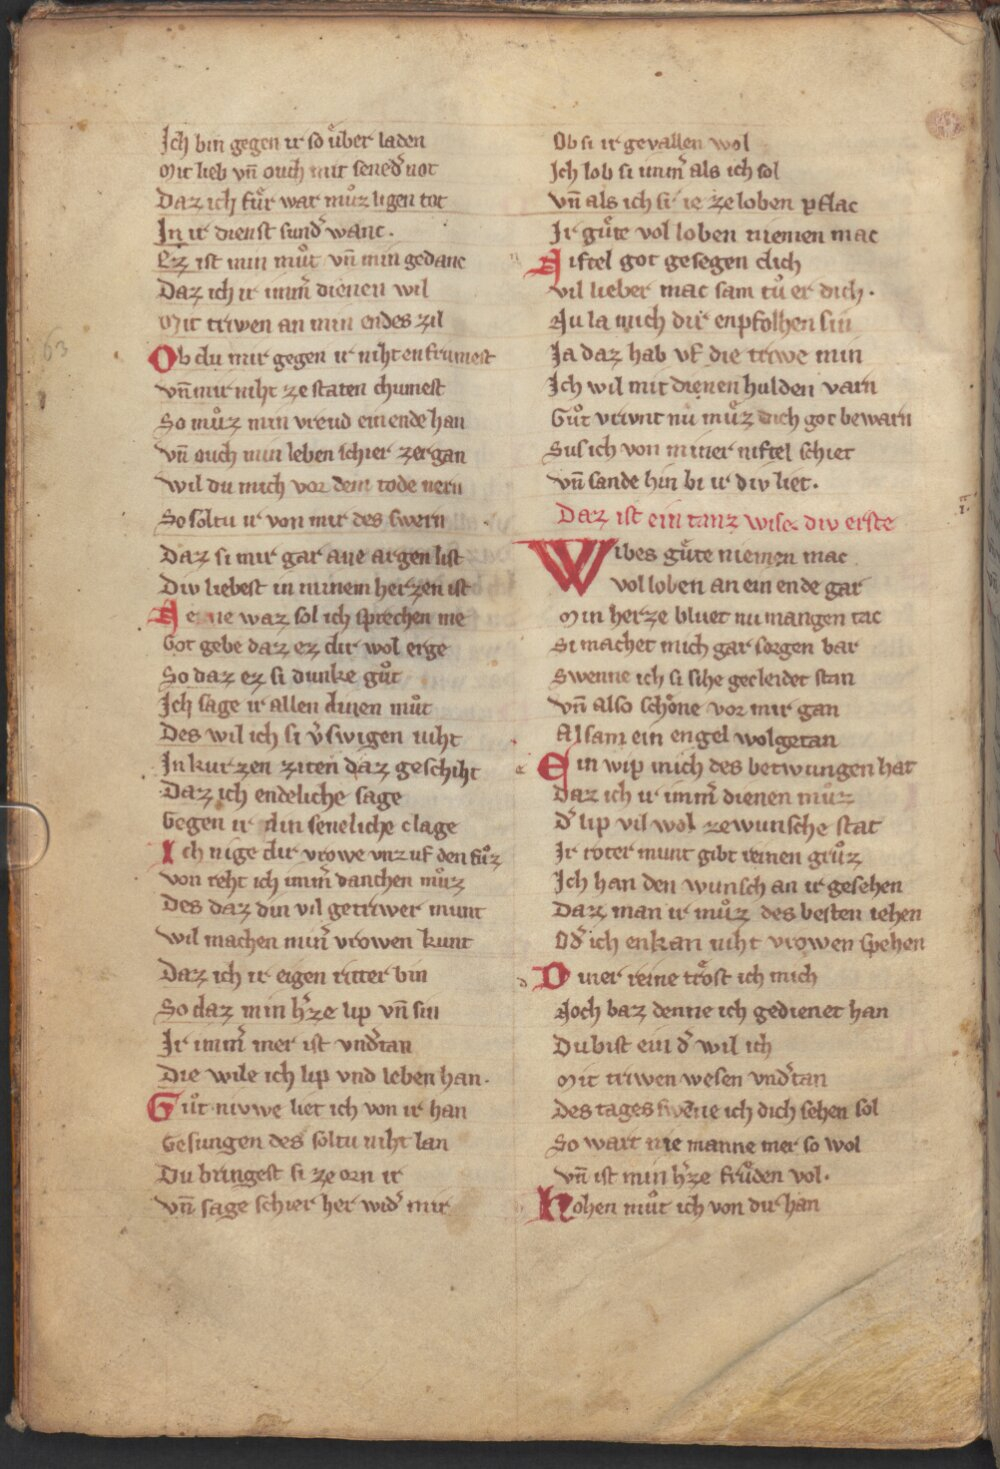 Ich bin gegen ir so uͤber laden
Mit lieb vn̄ ouch mit sened͛ not
Daz ich fuͤr war muͦz ligen tot
In ir dienst sund͛ wanc.
Ez ist min muͦt vn̄ min gedanc
Daz ich ir imm͛ dienen wil
Mit triwen an min endes zil
Ob du mir gegen ir niht enfrumest
vn̄ mir niht ze staten chumest
So muͦz min vreud ein ende han
vn̄ ouch min leben schier zergan
wil du mich vor dem tode nern
So soltu ir von mir des swern
Daz si mir gar ane argen list
Div liebest in minem herzen ist
Nene waz sol ich sprechen me
Got gebe daz ez dir wol erge
So daz ez si dunke guͦt
Ich sage ir allen dinen muͦt
Des wil ich si v͛swigen niht
In kurzen ziten daz geschiht
Daz ich endeliche sage
Gegen ir din seneliche clage
Ich nige dir vrowe vnz uf den fuͦz
von reht ich imm͛ danchen muͦz
Des daz din vil getriwer munt
wil machen min͛ vrowen kunt
Daz ich ir eigen ritter bin
So daz min h͛ze lip vn̄ sin
Ir imm͛ mer ist vnd͛tan
Die wile ich lip vnd leben han.
Guͦt nivwe liet ich von ir han
Gesungen des soltu niht lan
Du bringest si ze orn ir
vn̄ sage schier her wid͛ mir
Ob si ir gevallen wol
Ich lob si imm͛ als ich sol
vn̄ als ich si ie ze loben pflac
Ir guͤte vol loben niemen mac
Niftel got gesegen dich
vil lieber mac sam tuͦ er dich.
Nu la mich dir enpfolhen sin
Ja daz hab vf die triwe min
Ich wil mit dienen hulden varn
Guͦt vrivnt nu muͤz dich got bewarn
Sus ich von miner niftel schiet
vn̄ sande hin bi ir div liet.
Daz ist ein tanz wise div erste
Wibes guͤte niemen mac
vol loben an ein ende gar
Min herze bluet nu mangen tac
Si machet mich gar sorgen bar
Swenne ich si sihe gecleidet stan
vn̄ also schoͤne vor mir gan
Alsam ein engel wolgetan
Ein wip mich des betwungen hat
Daz ich ir imm͛ dienen muͦz
D͛ lip vil wol ze wunsche stat
Ir roter munt gibt reinen gruͦz
Ich han den wunsch an ir gesehen
Daz man ir muͦz des besten iehen
Od͛ ich enkan niht vrowen spehen
Diner reine troͤst ich mich
Noch baz denne ich gedienet han
Du bist ein d͛ wil ich
Mit triwen wesen vnd͛tan
Des tages swēne ich dich sehen sol
So wart nie manne mer so wol
vn̄ ist min h͛ze fruͤden vol.
Hohen muͦt ich von dir han